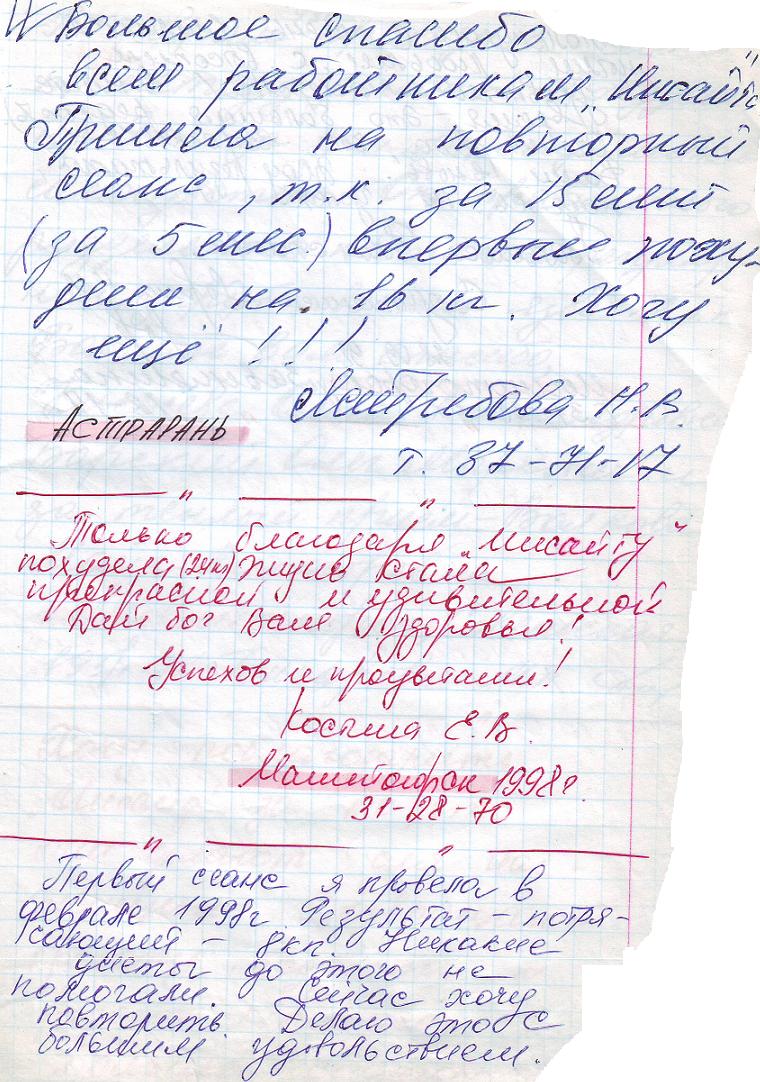 Большое спасибо
всем работникам „Инсайт"
Пришла на повторный
сеанс, т.к. за 15 лет
(за 5 мес.) впервые поху-
дела на 16 кг. Хочу
ещё!!!
Н.В.
АСТРАРАНЬ
т. 37-71-17
Только благодаря „Инсайту"
похудела (24кг) Жизнь стала
прекрасной и удивительной
Дай бог Вам здоровья!
Успехов и процветания!
Косына Е.В.
Магнитогорск 1998г.
31-28-70
Первый сеанс я провела в
феврале 1998г Результат - потря-
сающий - 8кг. Никакие
диеты до этого не
помогали. Сейчас хочу
повторить. Делаю это с
большим удовольствием.